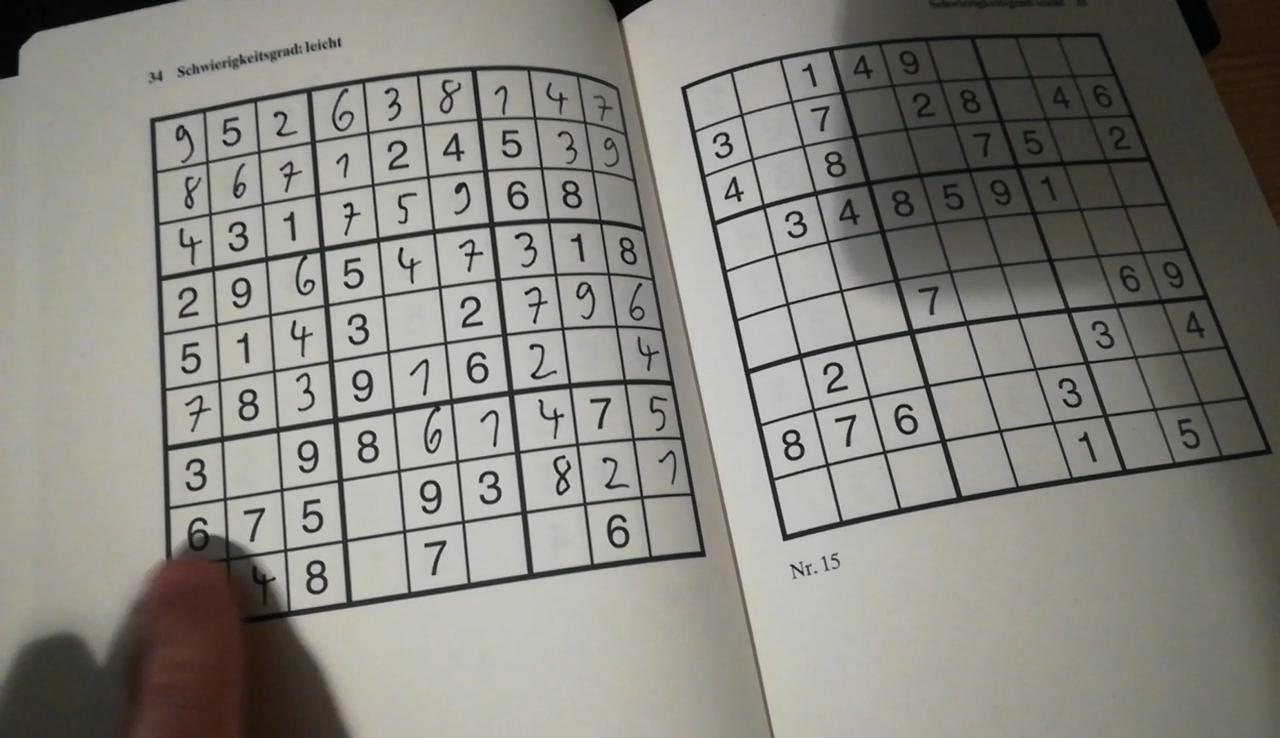 34 Schwierigkeitsgrad: leicht
9 5 2 6 3 8 1 4 7
8 6 7 1 2 4 5 3 9
4 3 1 7 5 9 6 8
2 9 6 5 4 7 3 1 8
5 1 4 3 2 7 9 6
7 8 3 9 1 6 2 4
3 9 8 6 1 4 7 5
6 7 5 9 3 8 2 1
4 8 7 6
Schwierigkeitsgrad: leicht
1 4 9
3 7 2 8 4 6
4 8 7 5 2
3 4 8 5 9 1
7 6 9
2 3 4
8 7 6 3
1 5
Nr. 15